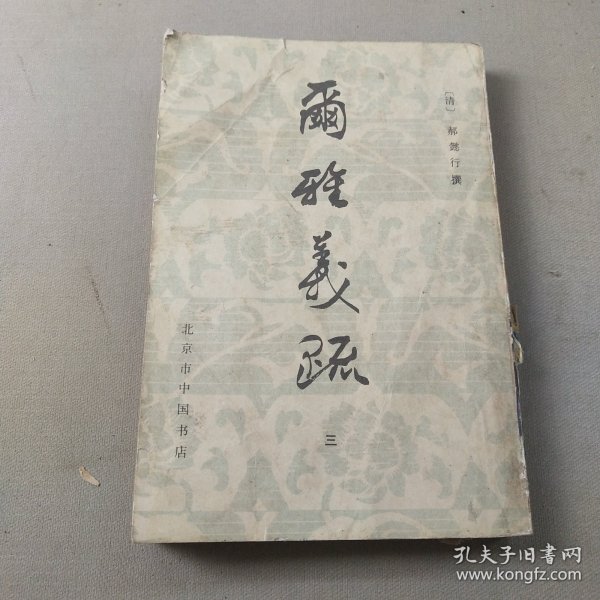 [清] 郝懿行撰
爾雅義疏
三
北京市中国书店
孔夫子旧書网
www.kongfz.com